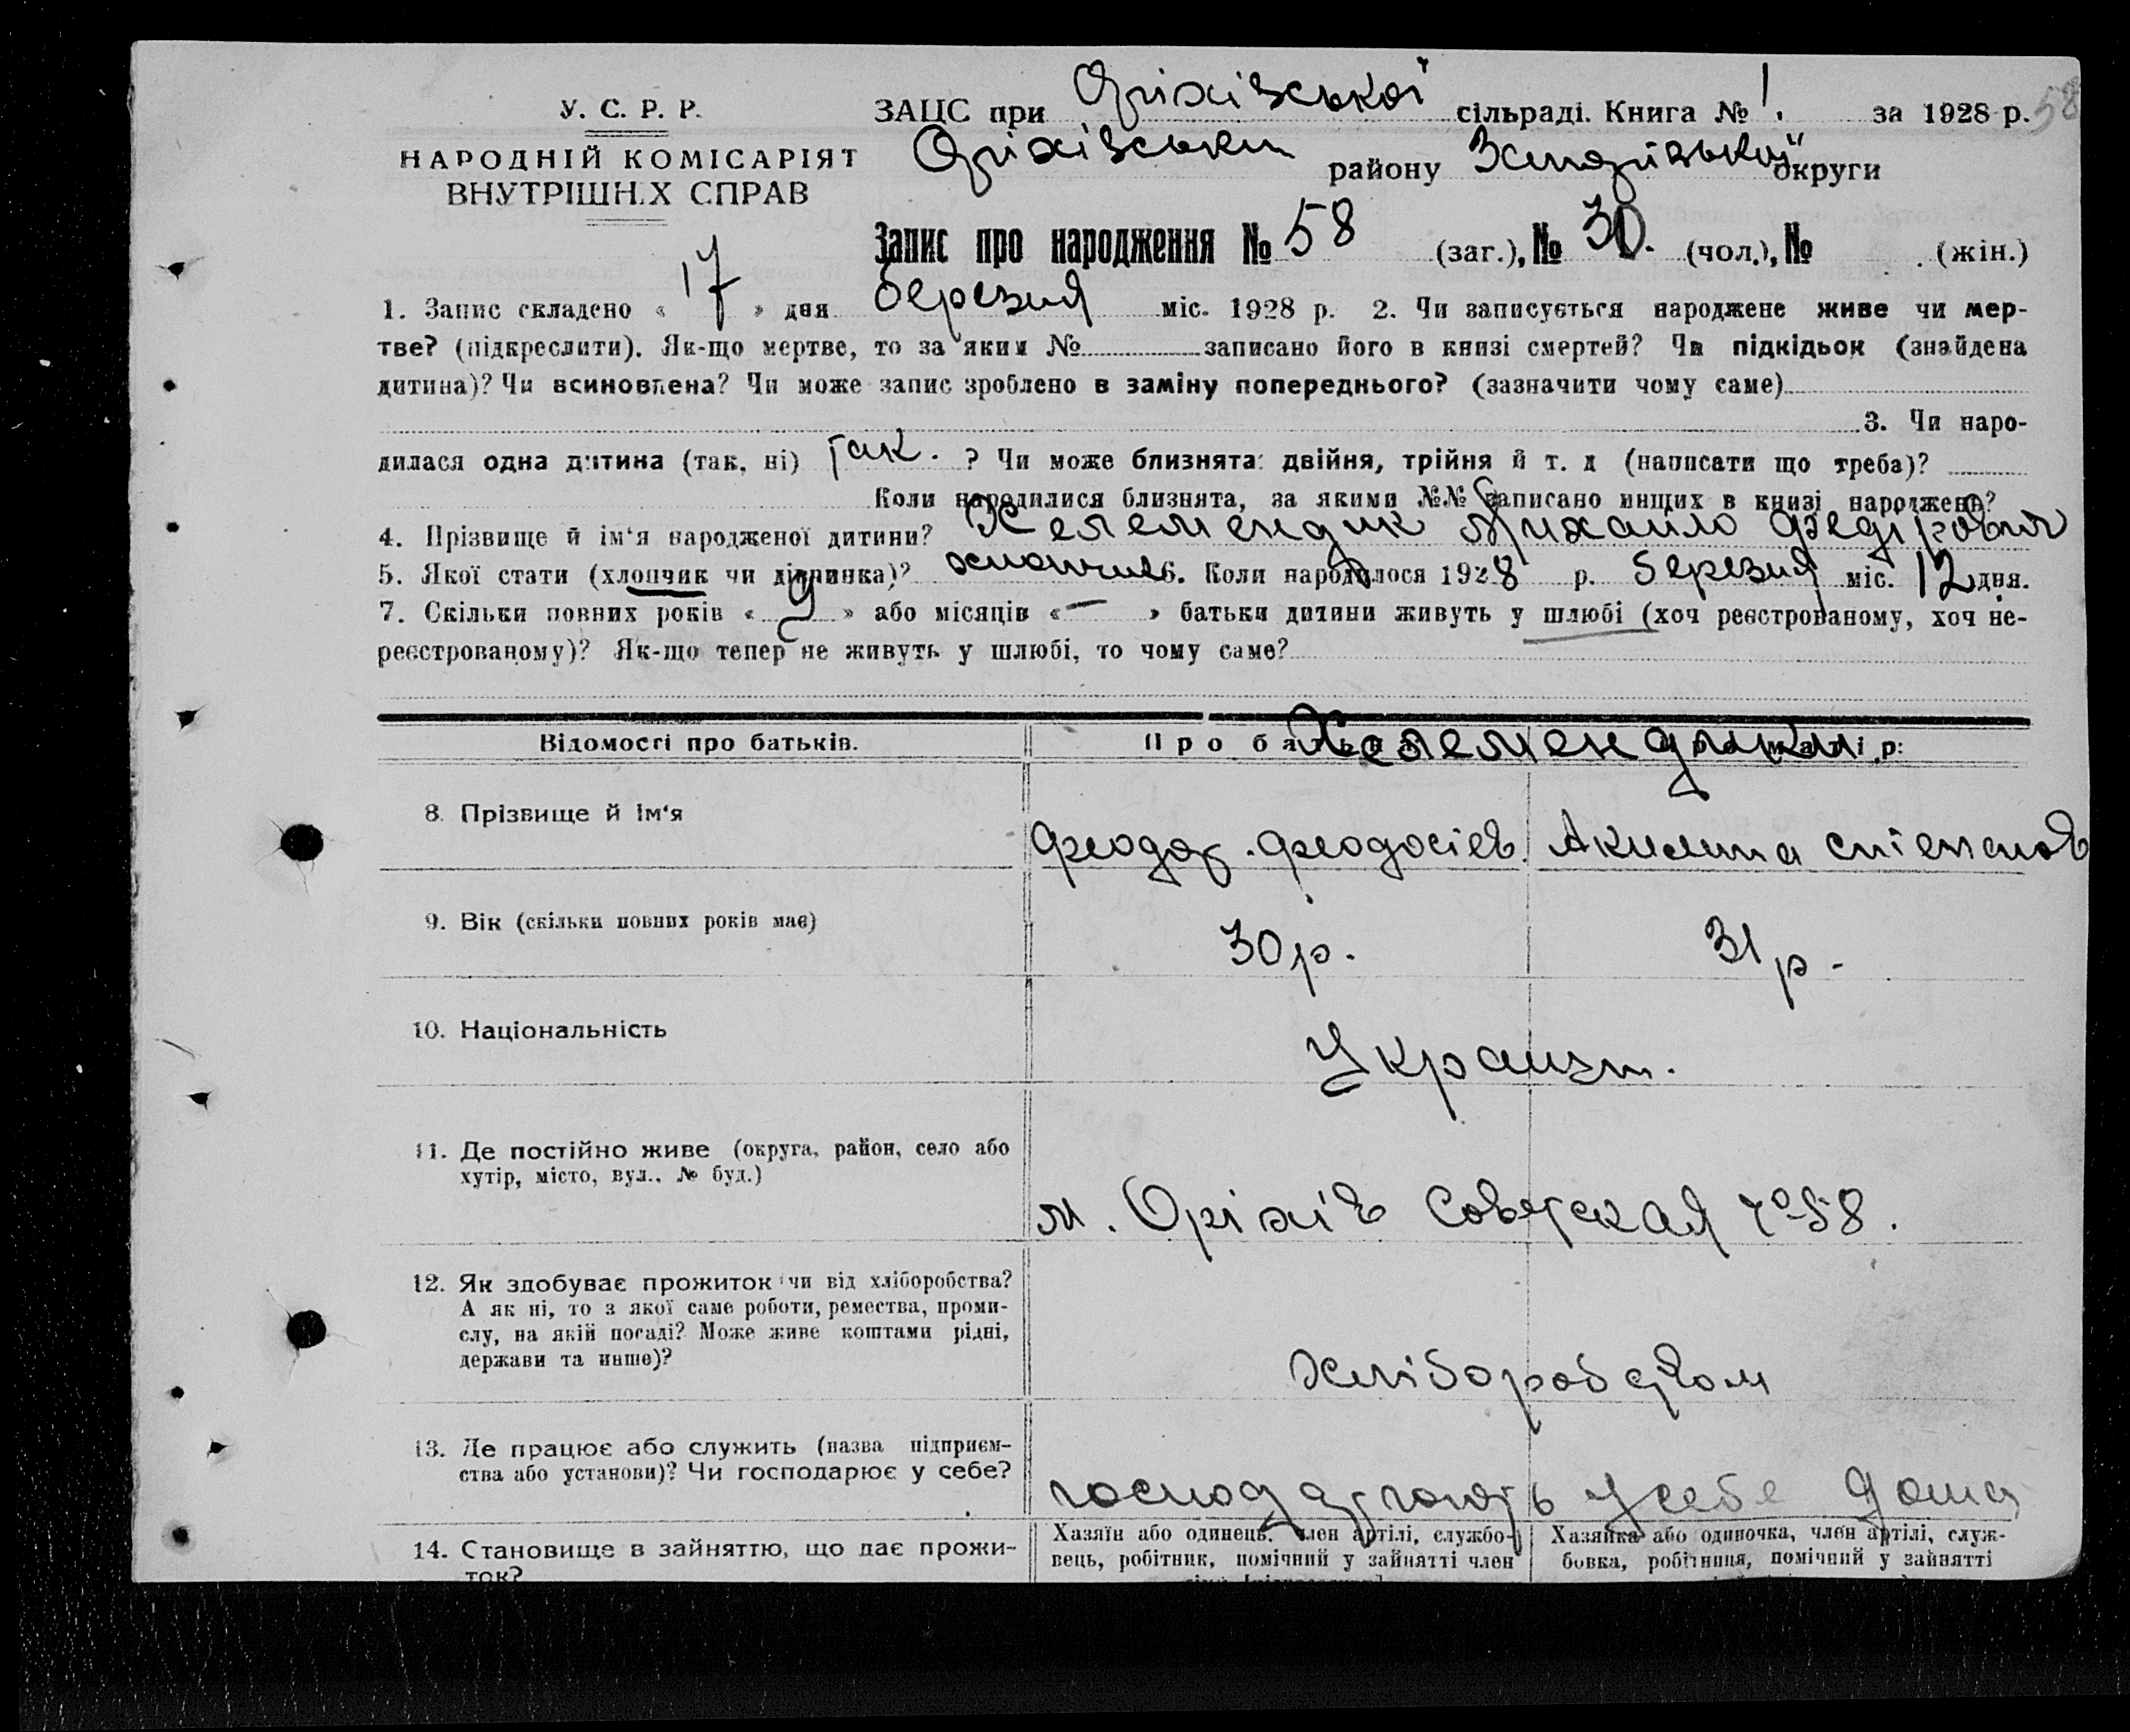 У. С. Р. Р.
НАРОДНІЙ КОМІСАРІЯТ
ВНУТРІШН.Х СПРАВ
ЗАЦС при Оріхівської сільраді. Книга № 1. за 1928 р. 58
Оріхівськи району Запорізької округи
Запис про народження № 58 (заг.), № 30. (чол.), № (жін.)
1. Запис складено « 17 » дня березня міс. 1928 р. 2. Чи записується народжене живе чи мер-
тве? (підкреслити). Як-що мертве, то за яким № записано його в книзі смертей? Чи підкідьок (знайдена
дитина)? Чи всиновлена? Чи може запис зроблено в заміну попереднього? (зазначити чому саме)
3. Чи наро-
дилася одна дитина (так, ні) так. ? Чи може близнята: двійня, трійня й т. д (написати що треба)?
Коли народилися близнята, за якими №№ записано инщих в книзі народжень?
4. Прізвище й ім'я народженої дитини? Желемендик Михайло Федіров
5. Якої стати (хлопчик чи дівчинка)? хлопчик 6. Коли народилося 1928 р. березня міс. 12 дня.
7. Скільки повних років « 9 » або місяців « — » батьки дитини живуть у шлюбі (хоч реєстрованому, хоч не-
реєстрованому)? Як-що тепер не живуть у шлюбі, то чому саме?
Відомості про батьків.
Про
Желемендики
8. Прізвище й ім'я
Феодор. Феодосіев.
Акилина Степанов
9. Вік (скільки повних років має)
30 р.
31 р.
10. Національність
11. Де постійно живе (округа, район, село або
хутір, місто, вул., № буд.)
м. Оріхів Советская № 58.
12. Як здобуває прожиток чи від хліборобства?
А як ні, то з якої саме роботи, ремества, проми-
слу, на якій посаді? Може живе коштами рідні,
держави та инше)?
Хліборобством
13. Де працює або служить (назва підприєм-
ства або установи)? Чи господарює у себе?
у себе дома
14. Становище в зайняттю, що дає прожи-
ток?
Хазяїн або одинець, член артілі, службо-
вець, робітник, помічний у зайнятті член
Хазяйка або одиночка, член артілі, служ-
бовка, робітниця, помічний у зайнятті